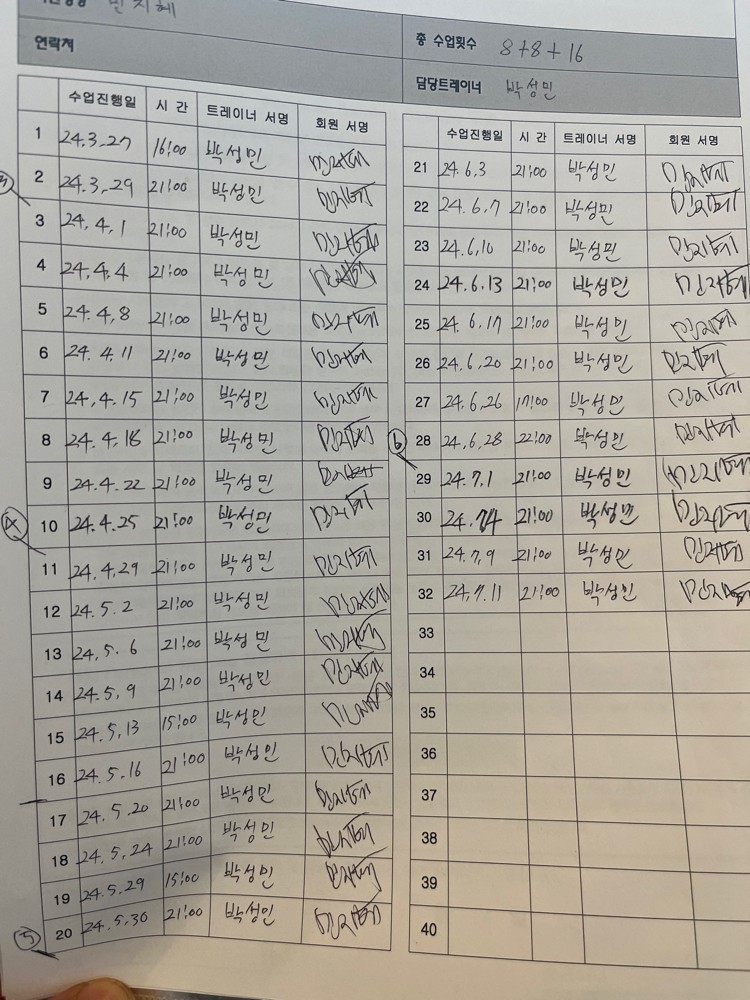 민지혜
연락처
총 수업횟수 8+8+16
담당트레이너 박성민
수업진행일 시 간 트레이너 서명 회원 서명
1 24.3.27 16:00 박성민 민지혜
2 24.3.29 21:00 박성민 민지혜
3 24.4.1 21:00 박성민 민지혜
4 24.4.4 21:00 박성민 민지혜
5 24.4.8 21:00 박성민 민지혜
6 24.4.11 21:00 박성민 민지혜
7 24.4.15 21:00 박성민 민지혜
8 24.4.18 21:00 박성민 민지혜
9 24.4.22 21:00 박성민 민지혜
10 24.4.25 21:00 박성민 민지혜
④
11 24.4.29 21:00 박성민 민지혜
12 24.5.2 21:00 박성민 민지혜
13 24.5.6 21:00 박성민 민지혜
14 24.5.9 21:00 박성민 민지혜
15 24.5.13 15:00 박성민 민지혜
16 24.5.16 21:00 박성민 민지혜
17 24.5.20 21:00 박성민 민지혜
18 24.5.24 21:00 박성민 민지혜
19 24.5.29 15:00 박성민 민지혜
20 24.5.30 21:00 박성민 민지혜
⑤
수업진행일 시 간 트레이너 서명 회원 서명
21 24.6.3 21:00 박성민 민지혜
22 24.6.7 21:00 박성민 민지혜
23 24.6.10 21:00 박성민 민지혜
24 24.6.13 21:00 박성민 민지혜
25 24.6.17 21:00 박성민 민지혜
26 24.6.20 21:00 박성민 민지혜
27 24.6.26 17:00 박성민 민지혜
28 24.6.28 22:00 박성민 민지혜
⑥
29 24.7.1 21:00 박성민 민지혜
30 24.7.4 21:00 박성민 민지혜
31 24.7.9 21:00 박성민 민지혜
32 24.7.11 21:00 박성민 민지혜
33
34
35
36
37
38
39
40